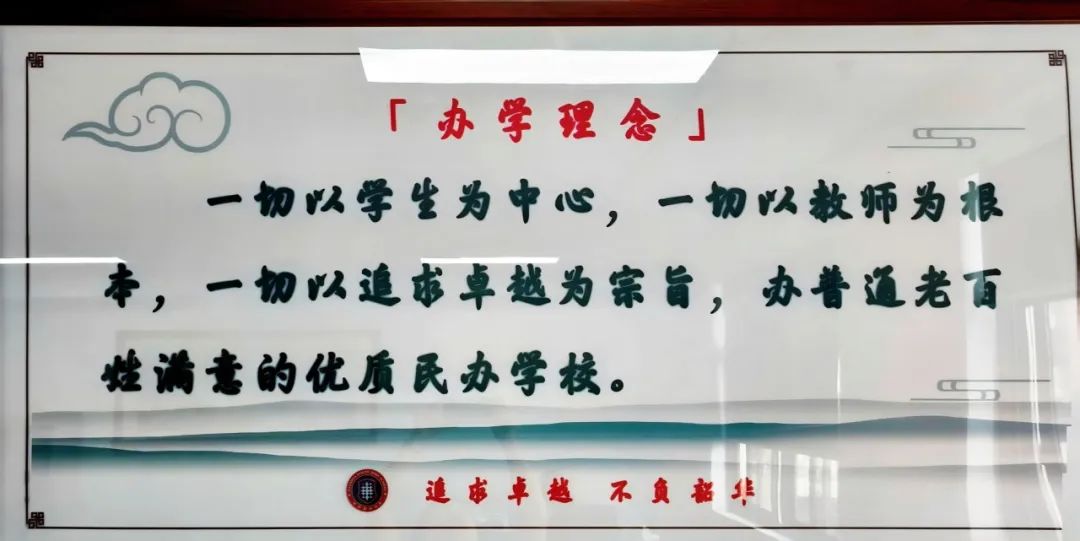 「办学理念」
一切以学生为中心，一切以教师为根
本，一切以追求卓越为宗旨，办普通老百
姓满意的优质民办学校。
追求卓越 不负韶华